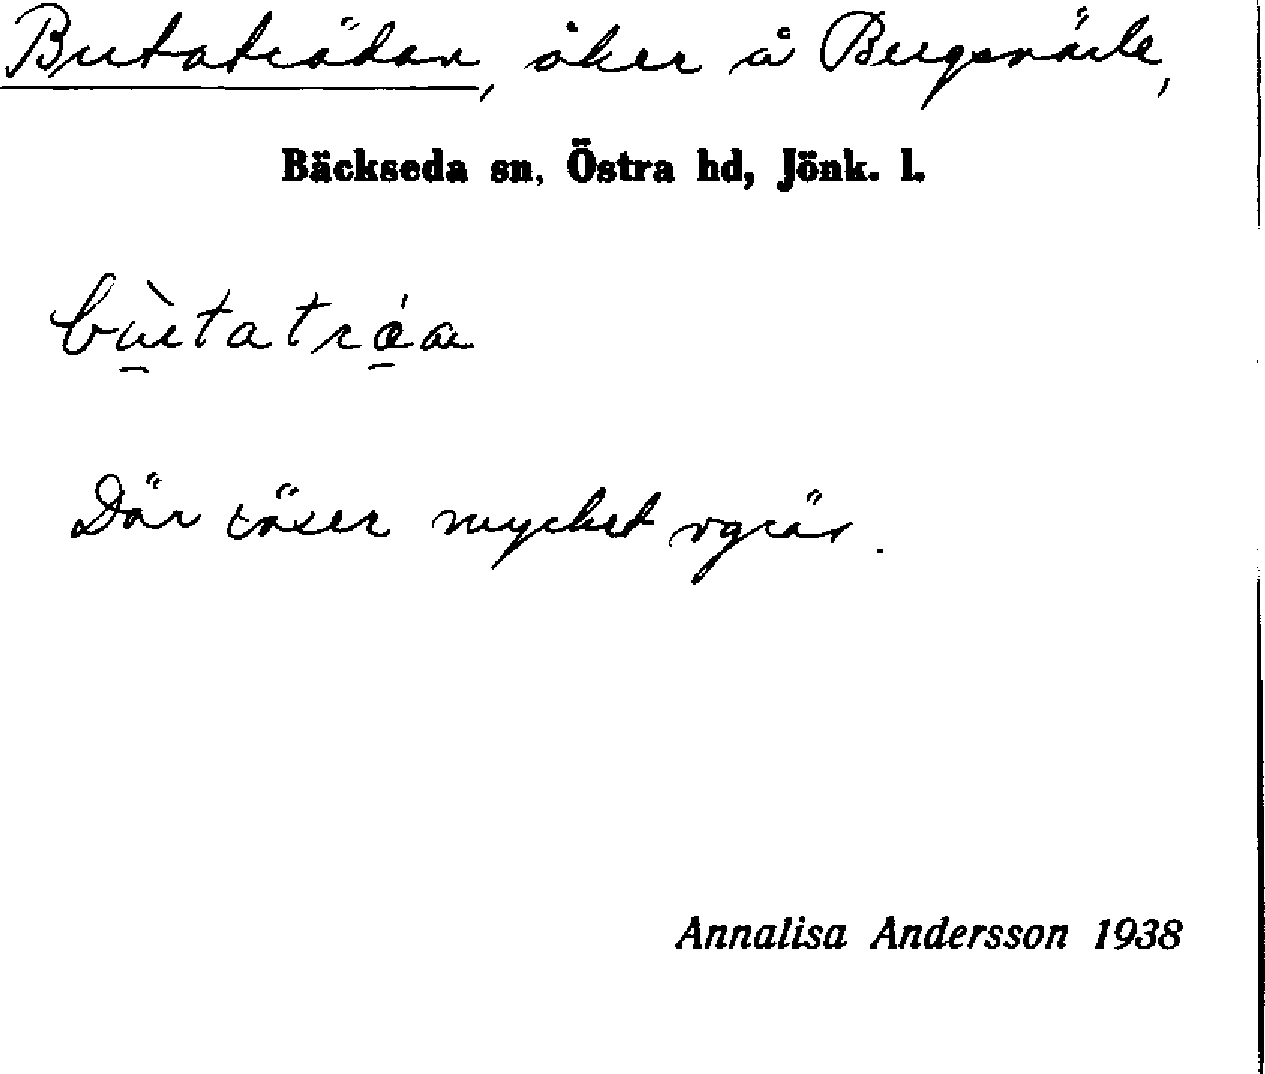 Butaträdan, åker å Bergsnäste,
Bäckseda sn, Östra hd, Jönk. l.
Där växer mycket ogräs.
Annalisa Andersson 1938